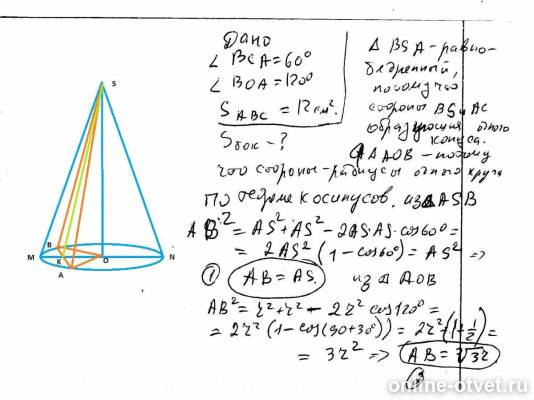 Дано
∠ BCA = 60°
∠ BOA = 120°
S ABC = 12 см².
Sбок - ?
Δ BSA - равно-
бедренный,
потому что
стороны BS и AC
образующие одного
конуса.
ΔAOB - потому
что стороны - радиусы одного круга
По теореме косинусов. из Δ ASB
AB² = AS² + AS² - 2AS·AS·cos60° =
= 2AS² (1 - cos60°) = AS² =>
① AB = AS. из Δ AOB
AB² = r² + r² - 2r² cos120° =
= 2r² (1 - cos(90+30°)) = 2r² (1 + 1/2) =
= 3r² => AB = √3r
②
S
B
M
K
O
N
A
online-otvet.ru